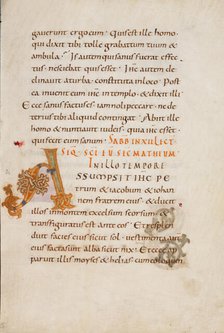 gauerunt ergo eum · Quis est ille homo
qui dixit tibi tolle grabattum tuum &
ambula · Is autem qui sanus fuerat effec
tus · nesciebat quis esset · Ihc autem de
clinauit a turba · constituta in loco · Post
ea inuenit eum ihc in templo · & dixit illi
Ecce sanus factus es · iam noli peccare · ne de
terius tibi aliquid contingat · Abiit ille
homo & nuntiauit iudeis · quia ihc esset
qui fecit eum sanum · SABB IN XII LECT
SEQ · SCI EU SEC MATHEUM
IN ILLO TEMPORE
ASSUMPSIT IHC PE
trum & iacobum & iohan
nem fratrem eius · & duxit
illos in montem excelsum seorsum · &
transfiguratus est ante eos · Et resplen
duit facies eius sicut sol · uestimenta aut
eius facta sunt alba sicut nix · Et ecce ap
paruit illis moyses & helias cum eo loquen